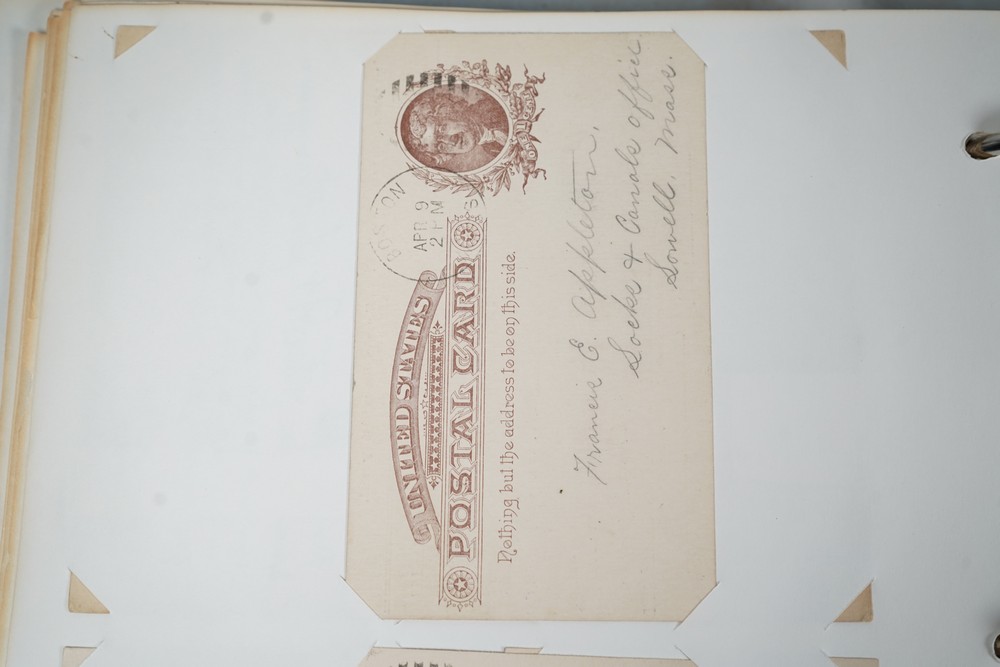 UNITED STATES
POSTAL CARD
Nothing but the address to be on this side.
ONE CENT
BOSTON
APR 9
2 PM
Francis E. Appleton.
Locks & Canals office
Lowell. Mass.